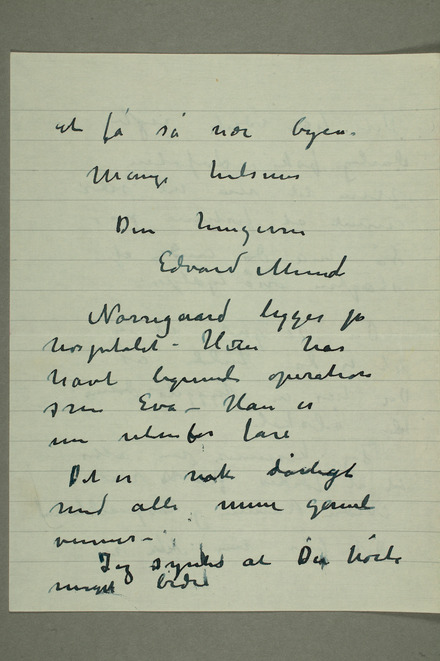 at få så nær byen.
Mange hilsener
Din hengivne
Edvard Munch
Nørregaard ligger på
hospitalet – Han har
havt lignende operation
som Eva – Han er
nu udenfor fare
Det er nok dårligt
med alle mine gamle
venner –
Jeg syntes at Du hørte
meget bedre